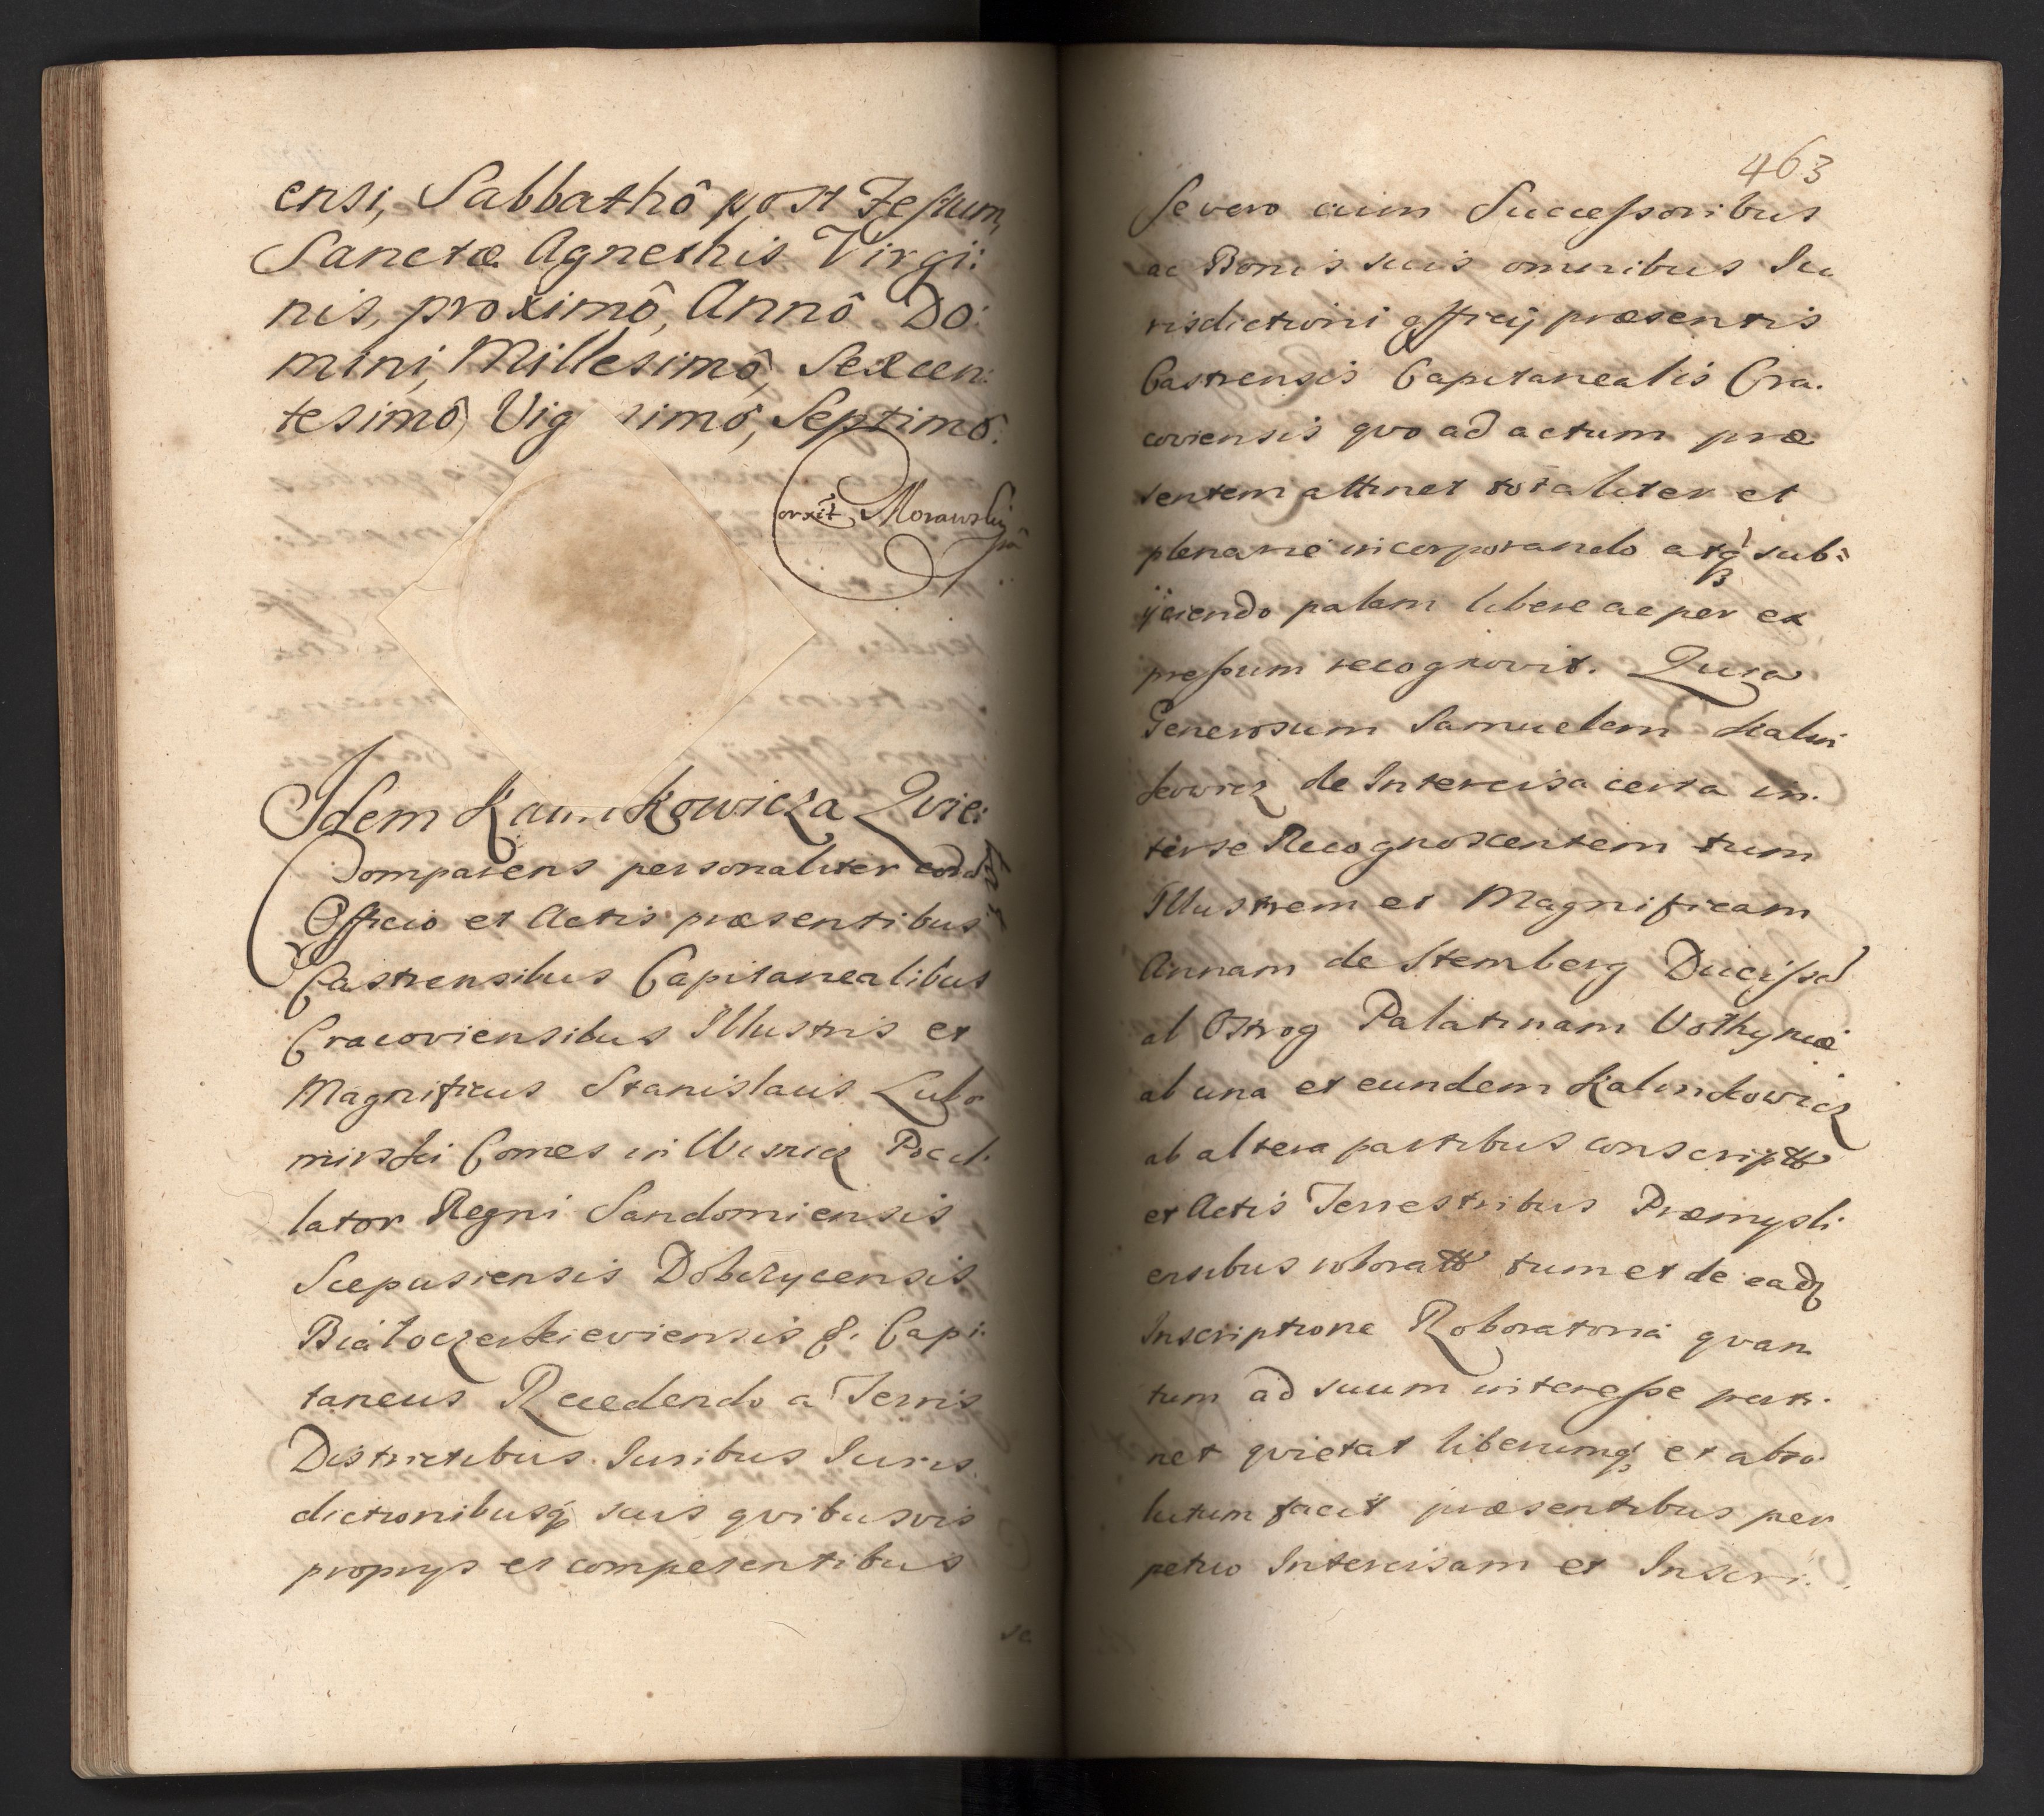 ensi, Sabbathô post Festum,
Sanctæ Agnethis Virgi:
nis, proximô, Annô Do:
mini, Millesimô, Sexcen:
tesimô, Vig simô, Septimô.
Morawsky
Idem Kalinkowicza Qvie:
Comparens personaliter coram
Officio et Actis præsentibus
Castrensibus Capitanealibus
Cracoviensibus Illustris et
Magnificus Stanislaus Lubo
mirski Comes in Wisnicz Pocil:
lator Regni Sandomiensis
Scepusiensis Dobczycensis
Białoczerkieviensis &. Capi:
taneus Recedendo a Terris
Districtibus Iuribus Iuris
dictionibusq, suis qvibusvis
proprys et competentibus
se
463
Se vero cum Successoribus
ac Bonis suis omnibus Iu
risdictioni officij præsentis
Castrensis Capitanealis Cra.
coviensis qvo ad actum præ
sentem attinet totaliter et
plenarie incorporando atq, sub:
ijciendo palam libere ac per ex
pressum recognovit. Quia
Generosum Samuelem Kalin
kowicz de Intercisa certa in.
ter se Recognoscentem tum
Illustrem et Magnificam
Annam de Stemberg Ducissa
al Ostrog Palatinam Volhyniæ
ab una et eundem Kalinkowicz
ab altera partibus conscriptã
et Actis Terrestribus Præmysli
ensibus roboratã tum et de eadz
Inscriptione Roboratoria qvan
tum ad suum interesse perti.
net qvietat liberumq, et abso
lutum facit præsentibus per
petuo Intercisam et Inscri: